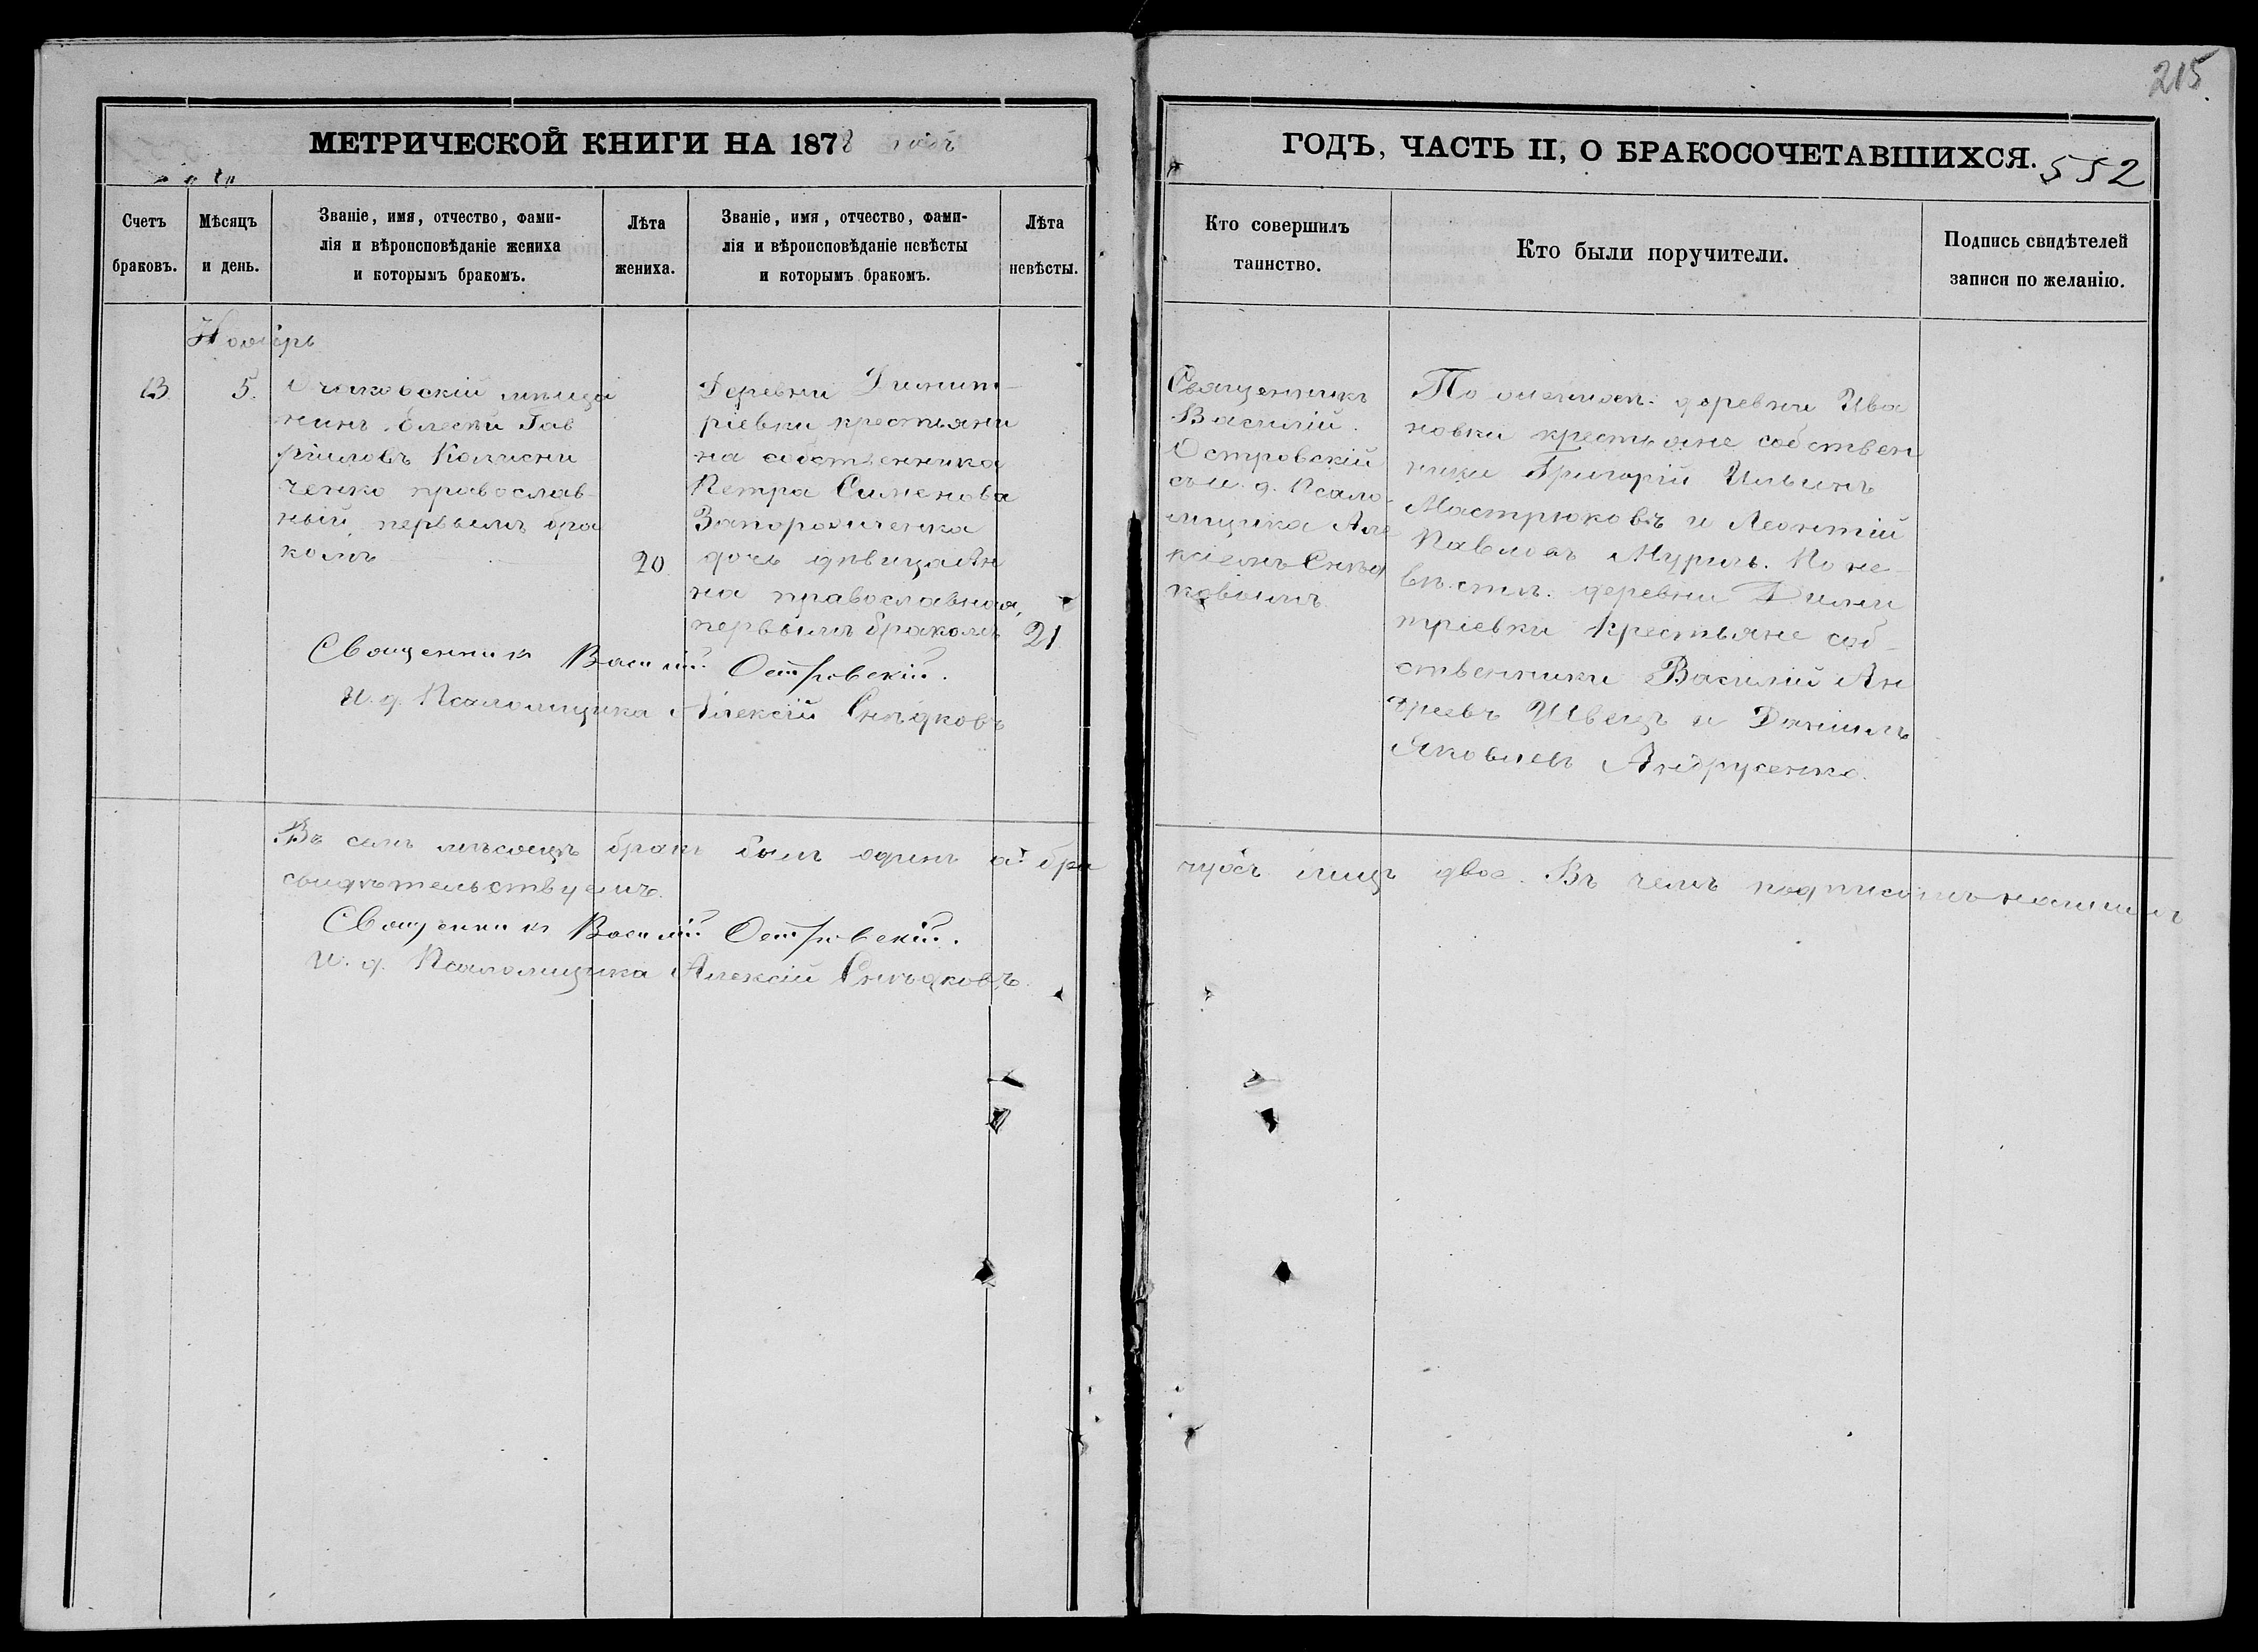 215
МЕТРИЧЕСКОЙ КНИГИ НА 1878 годъ
ГОДЪ, ЧАСТЬ II, О БРАКОСОЧЕТАВШИХСЯ.
552
Счетъ
браковъ.
Мѣсяцъ
и день.
Званіе, имя, отчество, фами-
лія и вѣроисповѣданіе жениха
и которымъ бракомъ.
Лѣта
жениха.
Званіе, имя, отчество, фами-
лія и вѣроисповѣданіе невѣсты
и которымъ бракомъ.
Лѣта
невѣсты.
Кто совершилъ
таинство.
Кто были поручители.
Подпись свидѣтелей
записи по желанію.
Ноябрь
13.
5.
Очаковскій мѣща
нинъ Гав
риловъ
ченко православ-
ный первымъ бра
комъ
20
Деревни Димит-
ріевки крестьяни
на собственника
Петра Сименова
Запорожченка
дочь дѣвица Ан
на православная,
первымъ бракомъ
21
Священникъ
Василій
Островскій
съ и. д. Псало-
мщика Але
ксіемъ Снѣд
ковымъ.
По женихѣ: деревни Ива
новки крестьяне собствен
ники Григорій Ильинъ
Мастрюковъ и Леонтій
Павловъ Мурль. По не-
вѣстѣ: деревни Дими
тріевки крестьяне соб-
ственники Василій Ан
дреевъ Швецъ и Даніилъ
Яковлевъ Андрусенко.
Священникъ Василій Островскій.
И. д. Псаломщика Алексій Снѣдковъ
Въ семъ мѣсяцѣ бракъ былъ одинъ а бра
чущ. лицъ двое. Въ чемъ подписомъ нашимъ
свидѣтельствуемъ.
Священникъ Василій Островскій.
И. д. Псаломщика Алексій Снѣдковъ.